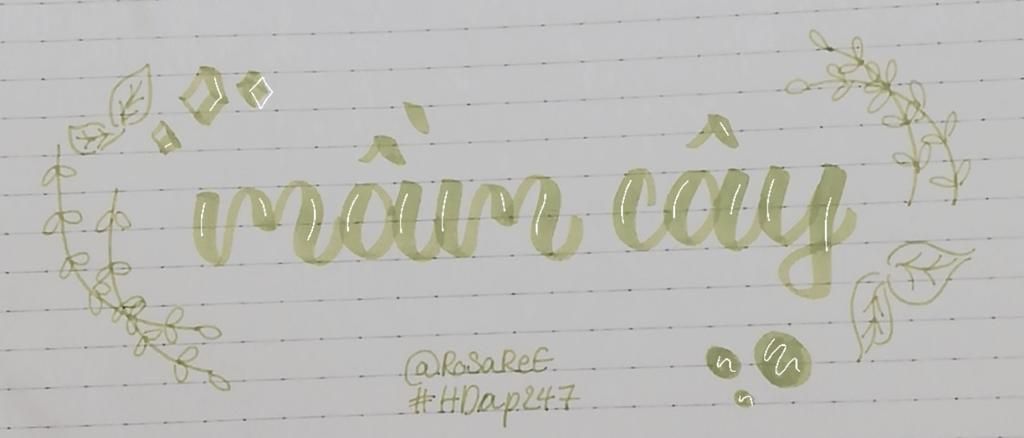 mầm cây
@RosaReE
#HDap247